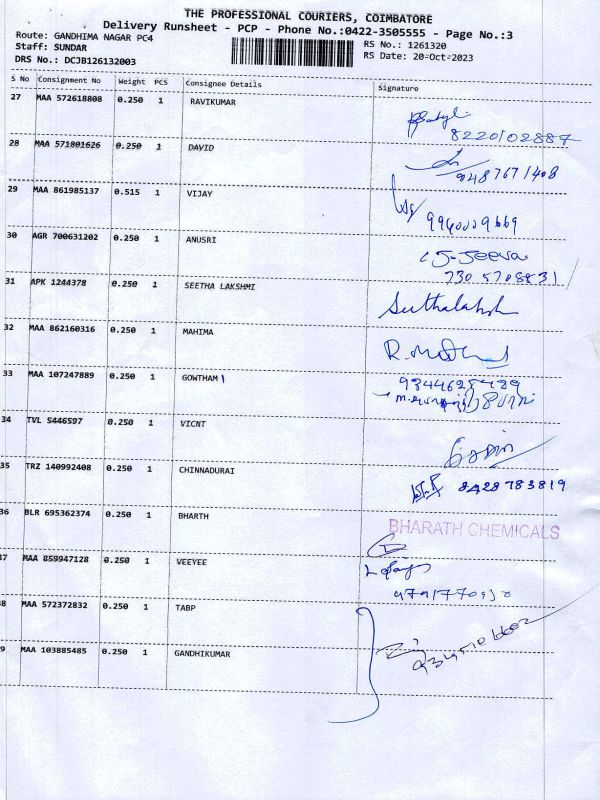 THE PROFESSIONAL COURIERS, COIMBATORE
Delivery Runsheet - PCP - Phone No.:0422-3505555 - Page No.:3
Route: GANDHIMA NAGAR PC4
RS No.: 1261320
Staff: SUNDAR
RS Date: 20-Oct-2023
DRS No.: DCJB126132003
S No Consignment No Weight PCS Consignee Details Signature
27 MAA 572618808 0.250 1 RAVIKUMAR
8220102887
28 MAA 571801626 0.250 1 DAVID
9487671408
29 MAA 861985137 0.515 1 VIJAY
30 AGR 700631202 0.250 1 ANUSRI
J. Jeeva
730 5708831
31 APK 1244378 0.250 1 SEETHA LAKSHMI
32 MAA 862160316 0.250 1 MAHIMA
33 MAA 107247889 0.250 1 GOWTHAM
34 TVL 5446597 0.250 1 VICNT
35 TRZ 140992408 0.250 1 CHINNADURAI
8428783819
36 BLR 695362374 0.250 1 BHARTH
BHARATH CHEMICALS
37 MAA 859947128 0.250 1 VEEYEE
38 MAA 572372832 0.250 1 TABP
39 MAA 103885485 0.250 1 GANDHIKUMAR